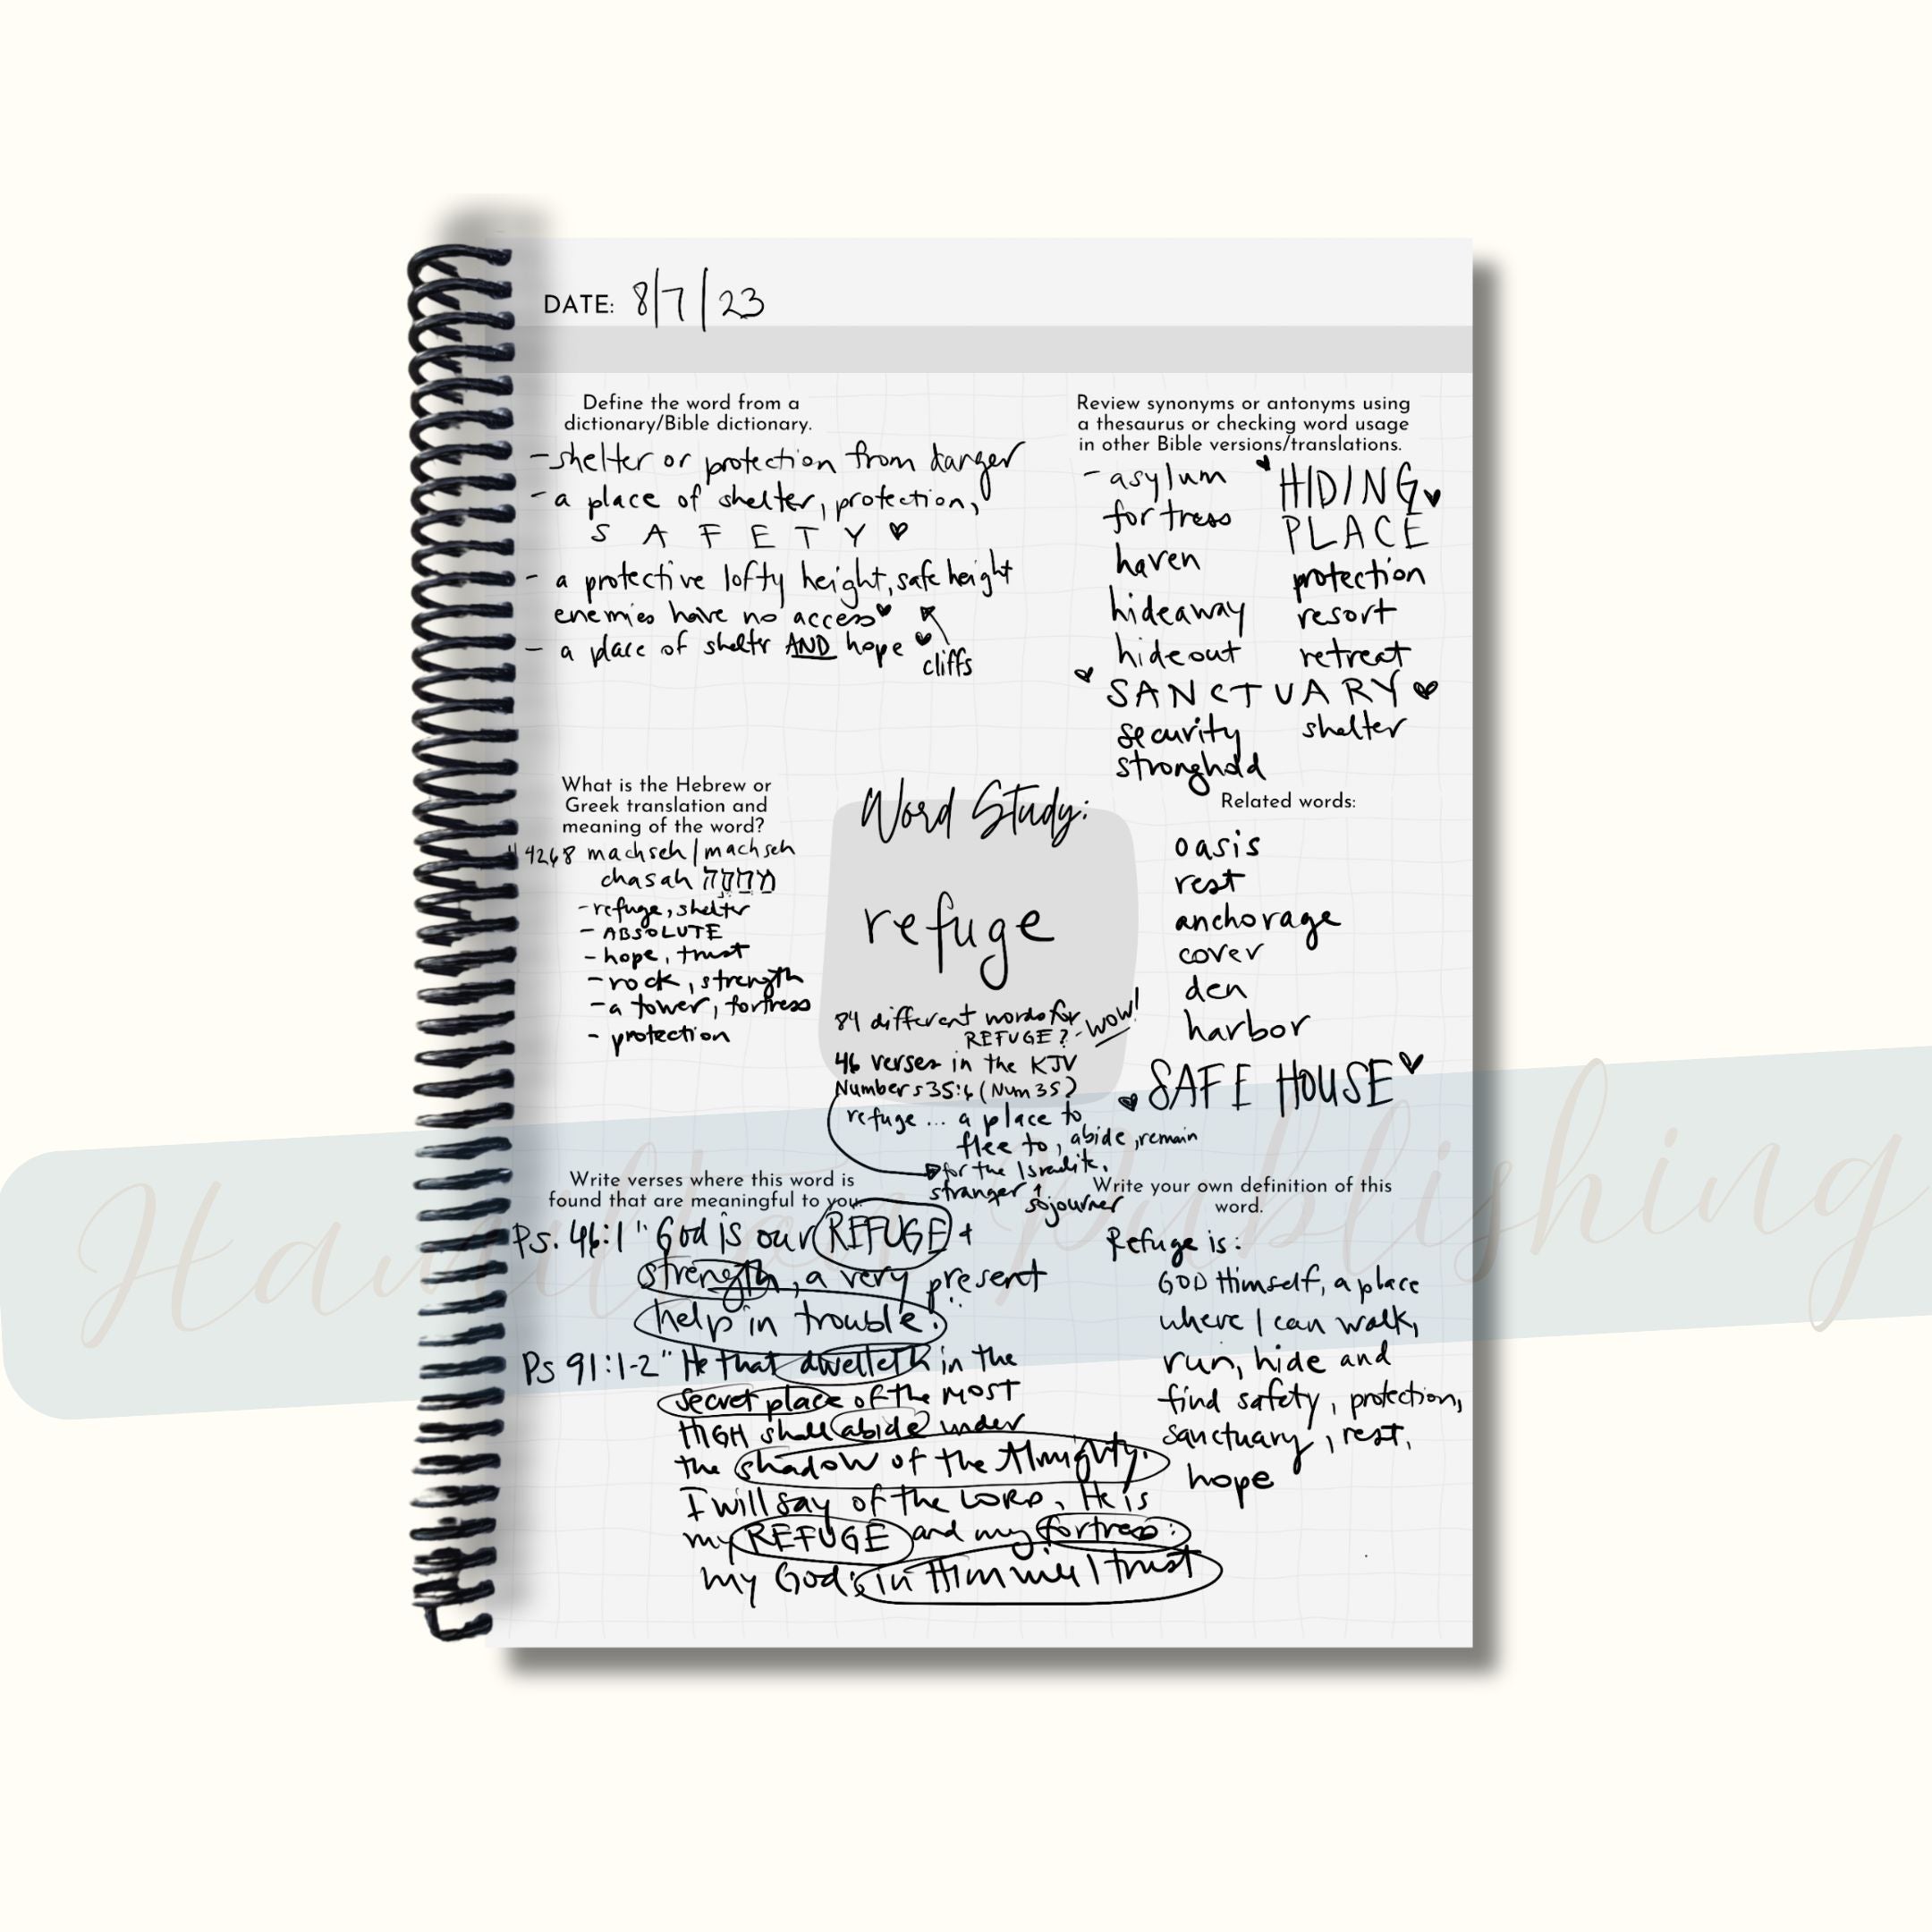 DATE: 8/7/23
Define the word from a
dictionary/Bible dictionary.
- shelter or protection from danger
- a place of shelter, protection,
S A F E T Y ♥
- a protective lofty height, safe height
enemies have no access ♥
- a place of sheltr AND hope ♥
cliffs
Review synonyms or antonyms using
a thesaurus or checking word usage
in other Bible versions/translations.
- asylum
fortress
haven
hideaway
hideout
♥ HIDING ♥
PLACE
protection
resort
retreat
♥ SANCTUARY ♥
security
shelter
stronghold
What is the Hebrew or
Greek translation and
meaning of the word?
4268 machseh/machseh
chasah
- refuge, shelter
- ABSOLUTE
- hope, trust
- rock, strength
- a tower, fortress
- protection
Word Study:
refuge
84 different words for
REFUGE? - WOW!
46 verses in the KJV
Numbers 35:6 (Num 35)
refuge ... a place to
flee to, abide, remain
for the Israelite,
stranger + sojourner
Related words:
oasis
rest
anchorage
cover
den
harbor
♥ SAFE HOUSE ♥
Write verses where this word is
found that are meaningful to you.
Ps. 46:1 "God is our REFUGE +
strength, a very present
help in trouble."
Ps 91:1-2 "He that dwelleth in the
secret place of the most
HIGH shall abide under
the shadow of the Almighty.
I will say of the LORD, He is
my REFUGE and my fortress:
my God; in Him will I trust
Write your own definition of this
word.
Refuge is:
GOD Himself, a place
where I can walk,
run, hide and
find safety, protection,
sanctuary, rest,
hope
Hamilton Publishing